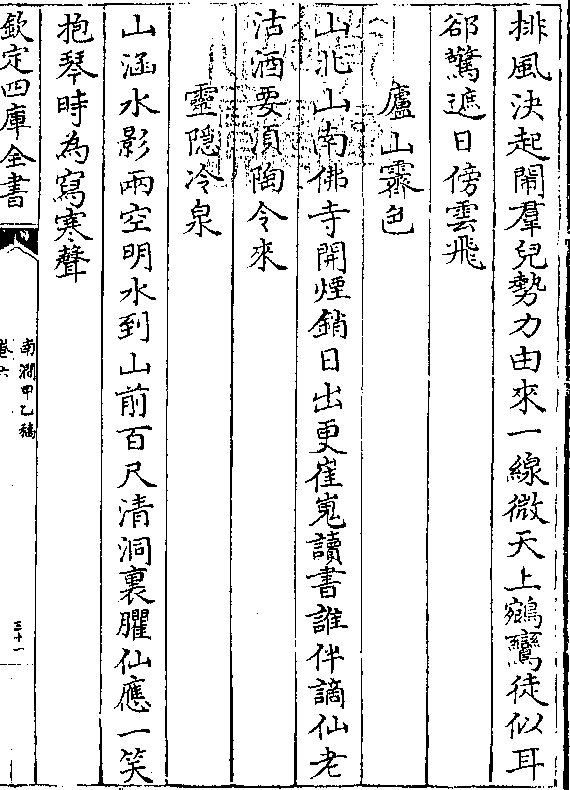 排風決起鬧羣兒勢力由來一線微天上鵷鸞徒似耳
郤驚遮日傍雲飛
廬山霽色
山北山南佛寺開煙銷日出更崔嵬讀書誰伴謫仙老
沽酒要須陶令來
靈隠冷泉
山涵水影兩空明水到山前百尺清洞裏臞仙應一笑
抱琴時為寫寒聲
欽定四庫全書
南澗甲乙稿
卷六
三十一